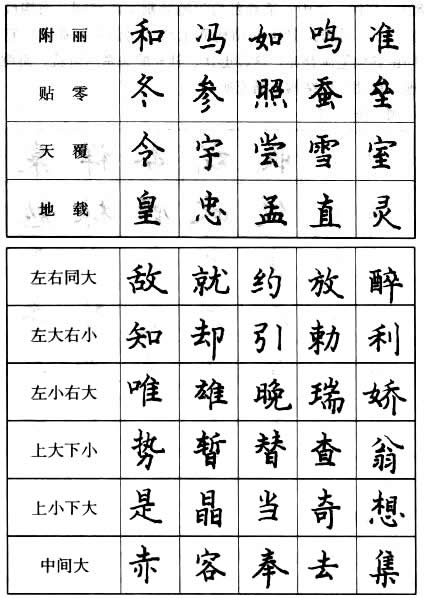 附丽 和 冯 如 鸣 准
贴零 冬 参 照 蚕 垒
天覆 令 宇 尝 雪 室
地载 皇 忠 孟 直 灵
左右同大 敌 就 约 放 醉
左大右小 知 却 引 勅 利
左小右大 唯 雄 晚 瑞 娇
上大下小 势 暂 替 查 翁
上小下大 是 晶 当 奇 想
中间大 赤 容 奉 去 集